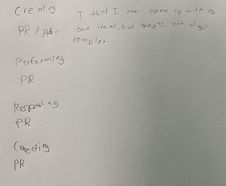 Creating
I think I can come up with
PR / Ad.
own items, but they're not always
complex.
Performing
PR
Responding
PR
Connecting
PR